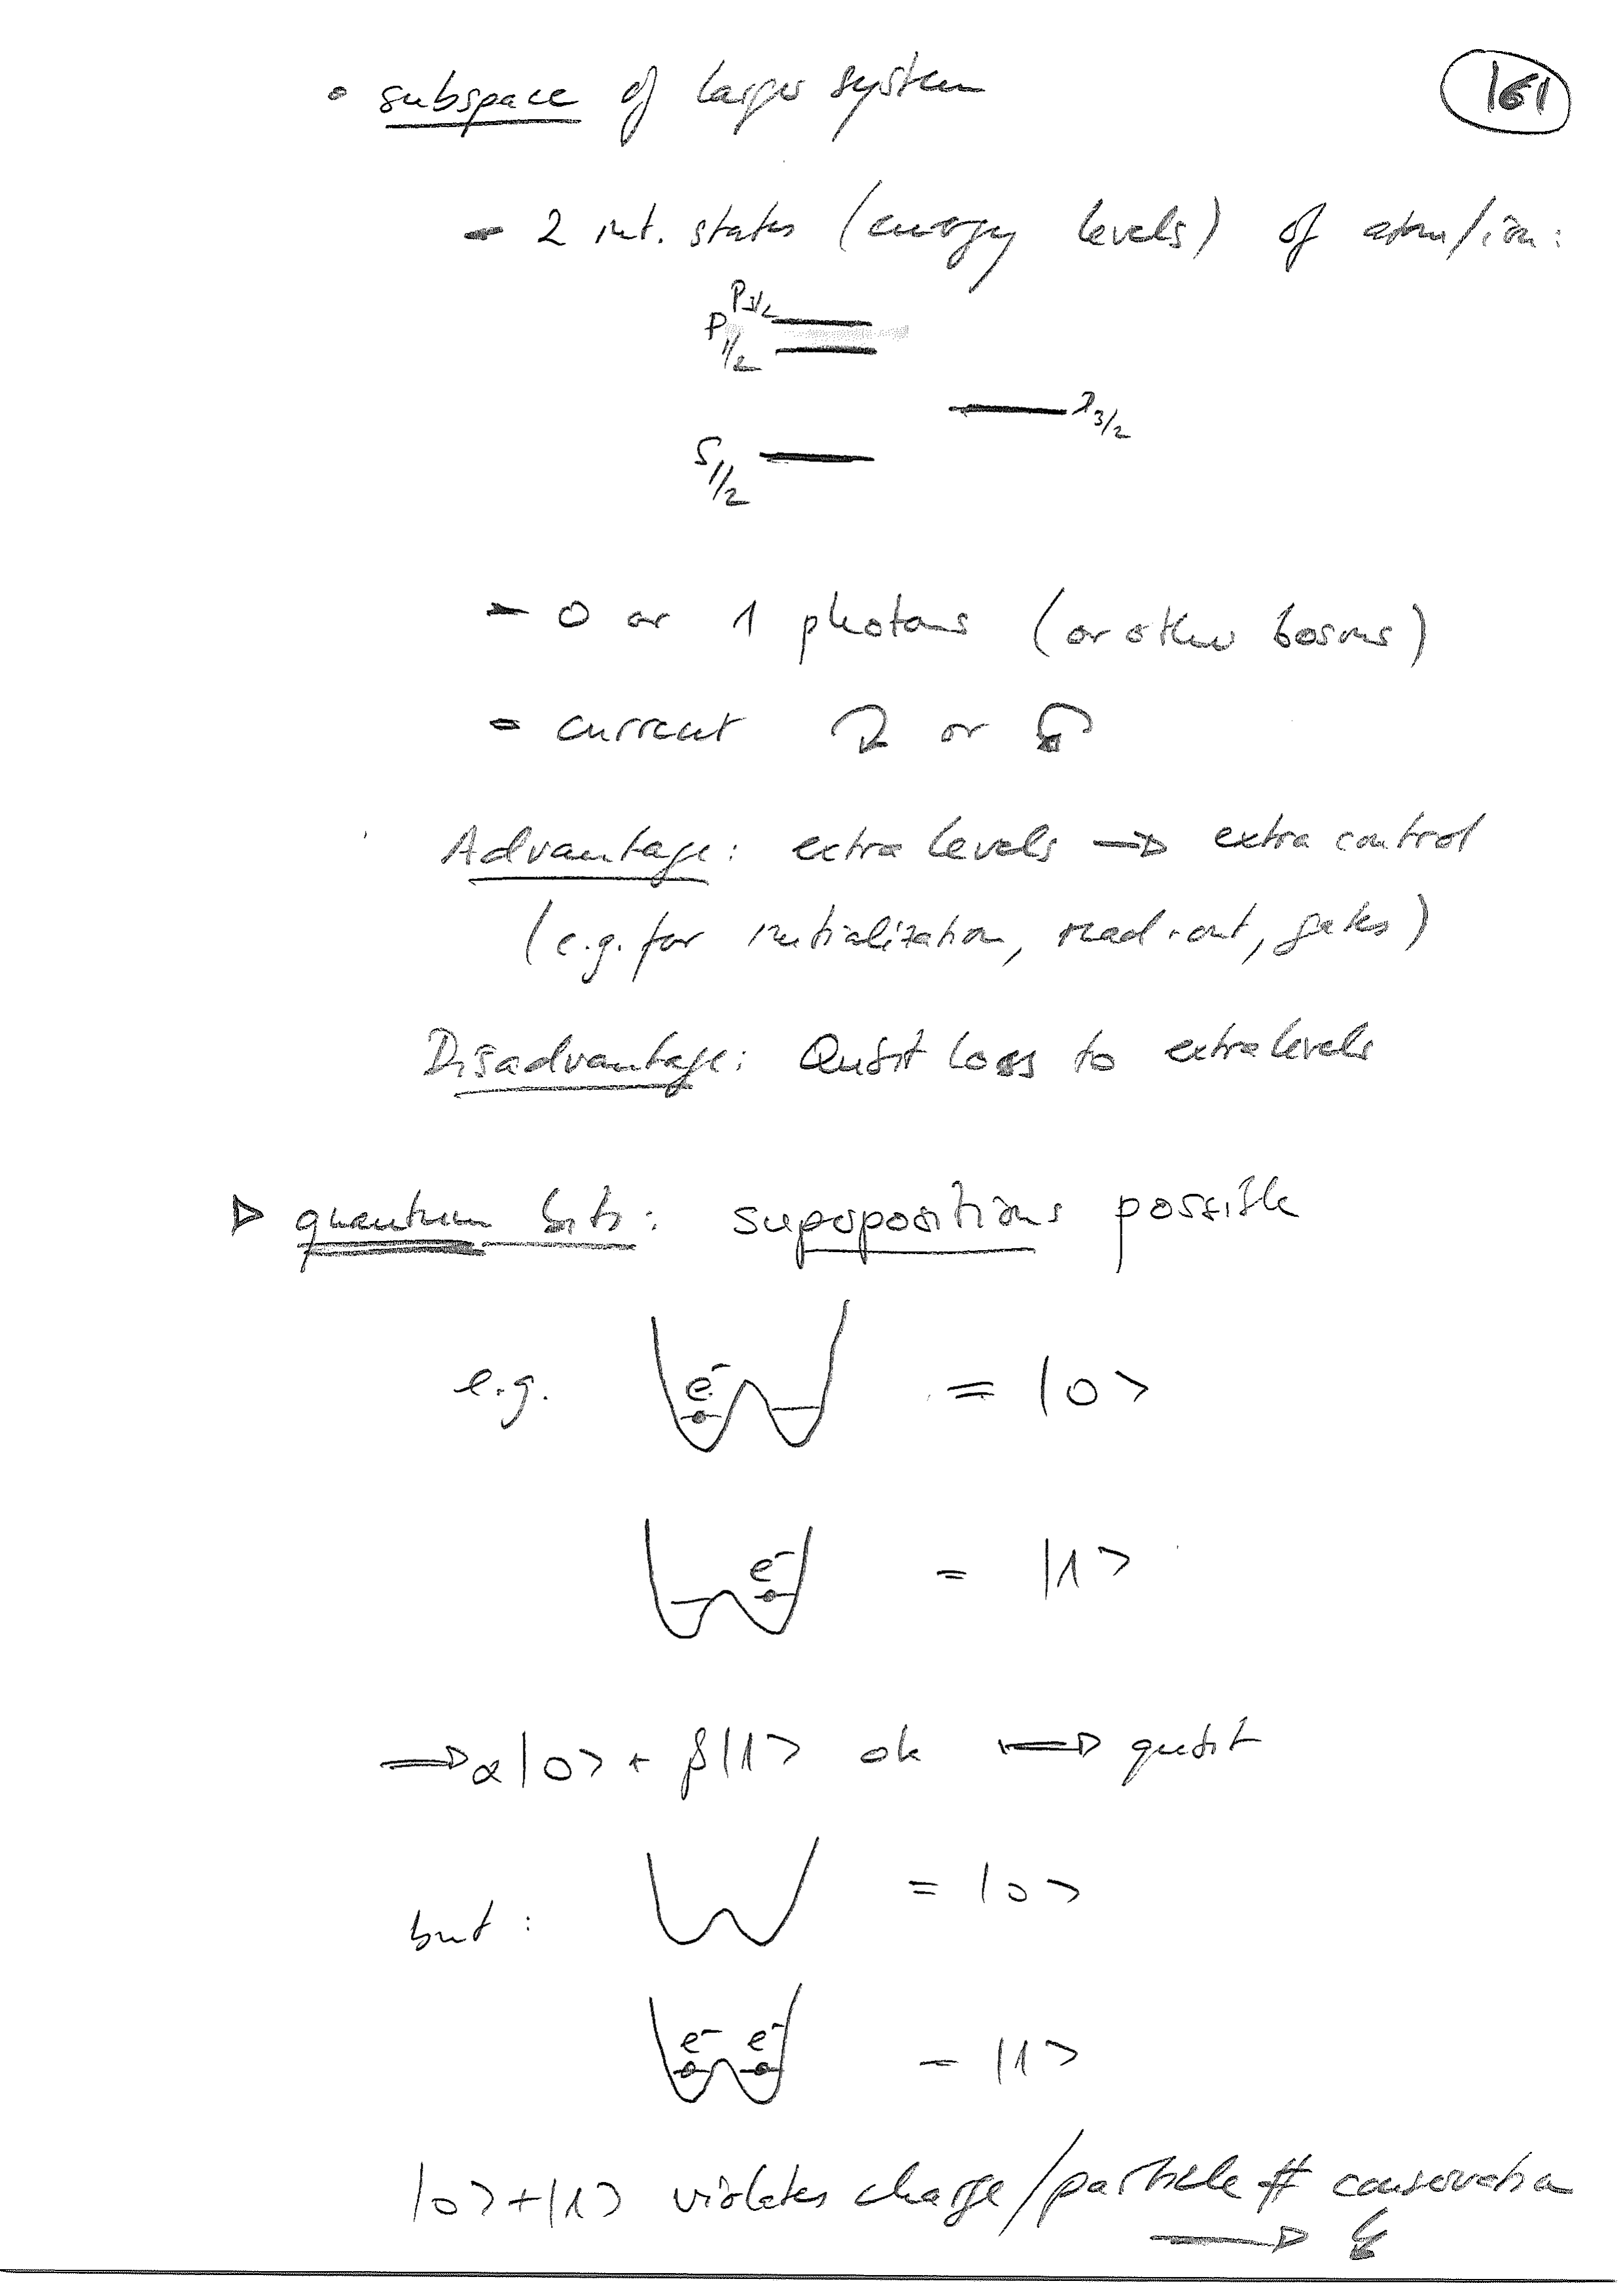 161
• subspace of larger system
- 2 int. states (energy levels) of atom/ion:
P3/2
P1/2
D3/2
S1/2
- 0 or 1 photons (or other bosons)
- current ↷ or ↶
Advantage: extra levels → extra control
(e.g. for initialization, read-out, gates)
Disadvantage: Qubit loss to extra levels
▷ quantum bits: superpositions possible
e.g. e- = |0>
e- = |1>
⇒ α|0> + β|1> ok ⟼ qubit
but: = |0>
e- e- = |1>
|0>+|1> violates charge/particle # conservation
→ ↯